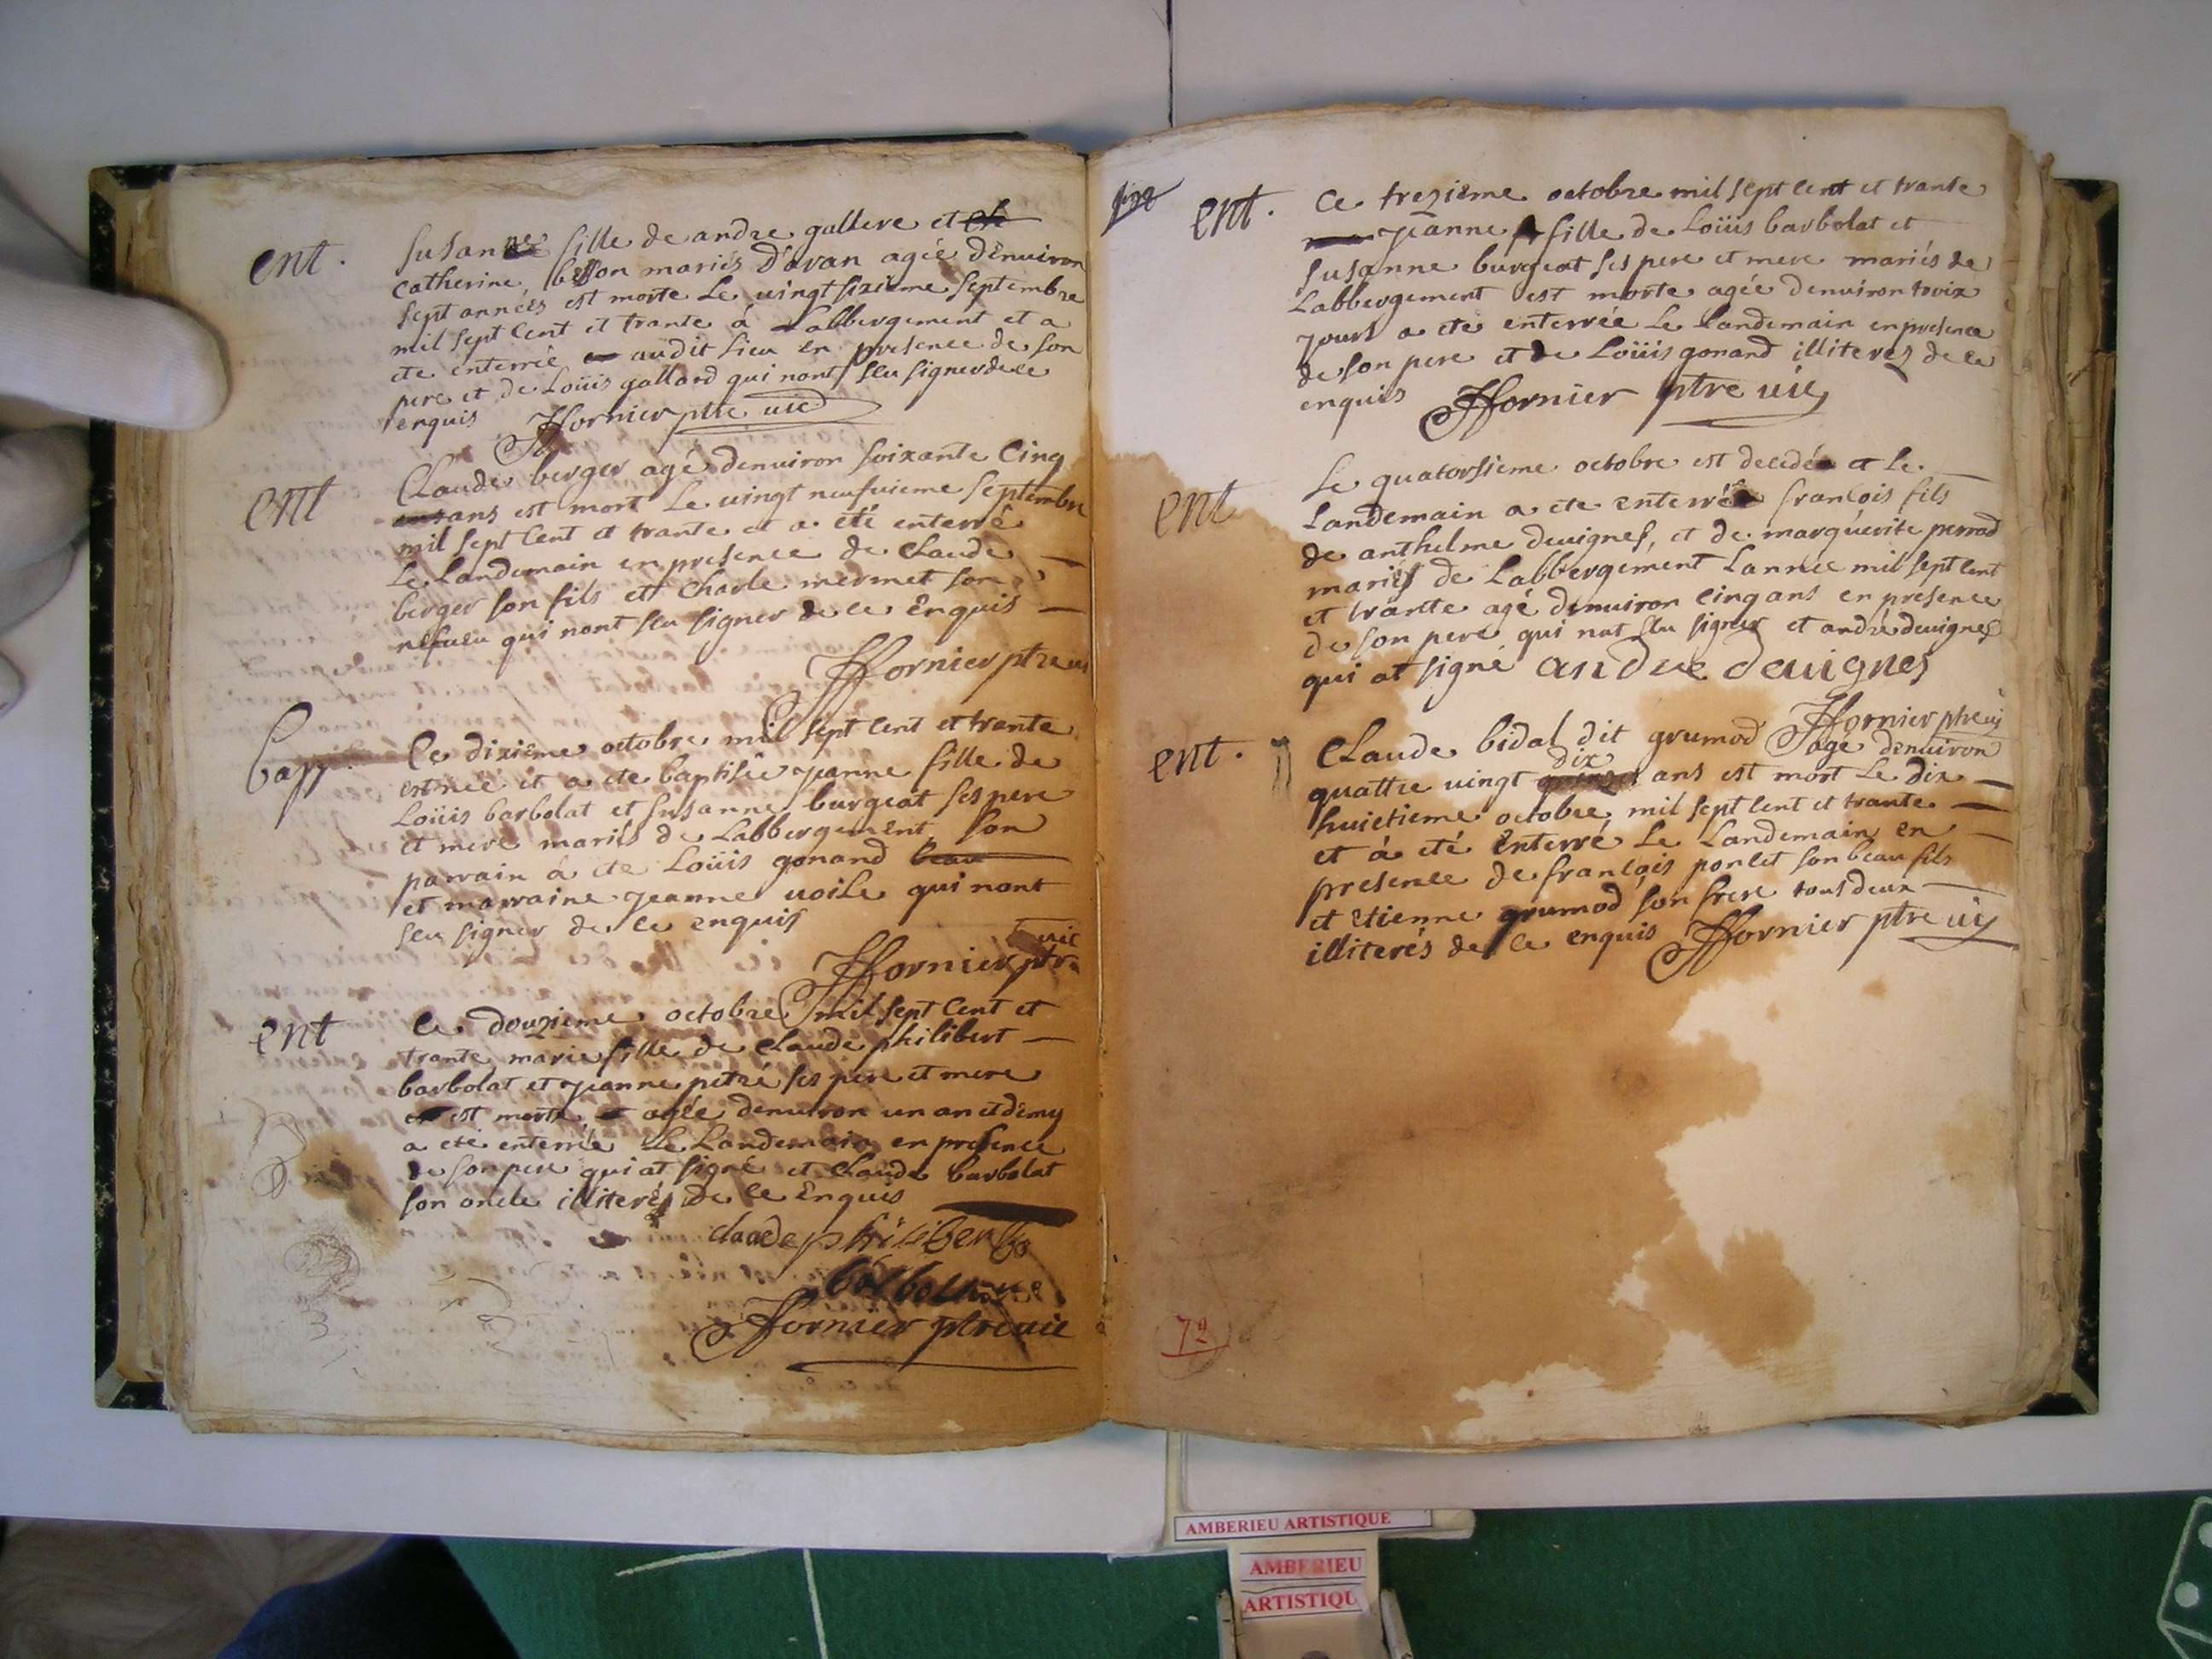 ent.
Susanne fille de andre gallere et
catherine besson mariés Davan agée denuiron
sept années est morte Le uingt sixieme septembre
mil sept cent et trante á Labbergement et a
ete enterrée audit Lieu en presence de son
pere et de Loüis gallard qui nont sceu signer de ce
enquis
Jffornier ptre uic
ent
Claude berger agé denuiron soixante cinq
ans est mort Le uingt neufuieme septembre
mil sept cent et trante et a eté enterré
Le Landemain en presence de Claude
berger son fils et Charle mermet son
nefueu qui nont sceu signer de ce enquis
Jffornier ptre
bap.
Ce dixiême octobre mil sept cent et trante
est née et a ete baptisée jeanne fille de
Loüis barbolat et susanne burgeat ses pere
et mere mariés de Labbergement son
parrain á ete Loüis gonand beau
et marraine jeanne uoile qui nont
sceu signer de ce enquis
Jffornier ptre uic
ent
Ce douzieme octobre mil sept cent et
trante marie fille de claude philibert
barbolat et jeanne petré ses pere et mere
est morte agée denuiron un an et demy
a eté enterrée Le Landemain en presence
de son pere qui at signé et claude barbolat
son oncle illiterés de ce enquis
claude philibert
barbolat
Jffornier ptre uic
ent.
Ce trezième octobre mil sept cent et trante
jeanne fille de Loüis barbolat et
susanne burgeat ses pere et mere mariés de
Labbergement est morte agée denuiron troix
jours a ete enterrée Le Landemain en presence
de son pere et de Loüis gonand illiterez de ce
enquis Jffornier ptre uic
ent
Le quatorsieme octobre est decedé et le
Landemain a ete enterré francois fils
de anthelme deuignes, et de marguerite perrod
mariés de Labbergement Lannée mil sept cent
et trante agé denuiron cinq ans en presence
de son pere qui nat sceu signer et andré deuignes
qui at signé andre deuignes
Jffornier ptre uic
ent.
Claude bidal dit grumod agé denuiron
quattre uingt dix ans est mort Le dix
huictieme octobre mil sept cent et trante
et á eté enterré Le Landemain en
presence de francois poncet son beau fils
et etienne grumod son frere tous deux
illiterés de ce enquis Jffornier ptre uic
AMBERIEU ARTISTIQUE
AMBERIEU
ARTISTIQU